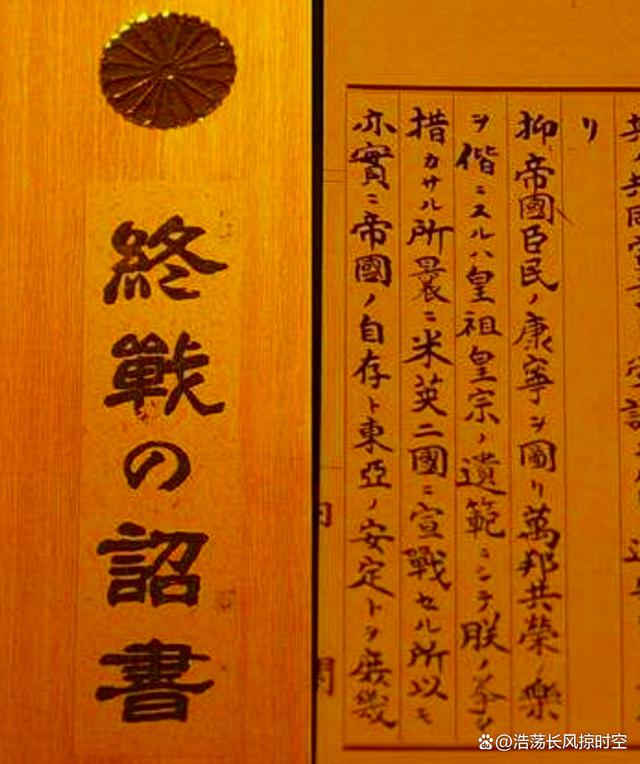 終戰の詔書
リ
抑帝國臣民ノ康寧ヲ圖リ萬邦共榮ノ樂
ヲ偕ニスルハ皇祖皇宗ノ遺範ニシテ朕ノ拳々
措カサル所曩ニ米英二國ニ宣戰セル所以モ
亦實ニ帝國ノ自存ト東亞ノ安定トヲ庶幾
@浩荡长风掠时空